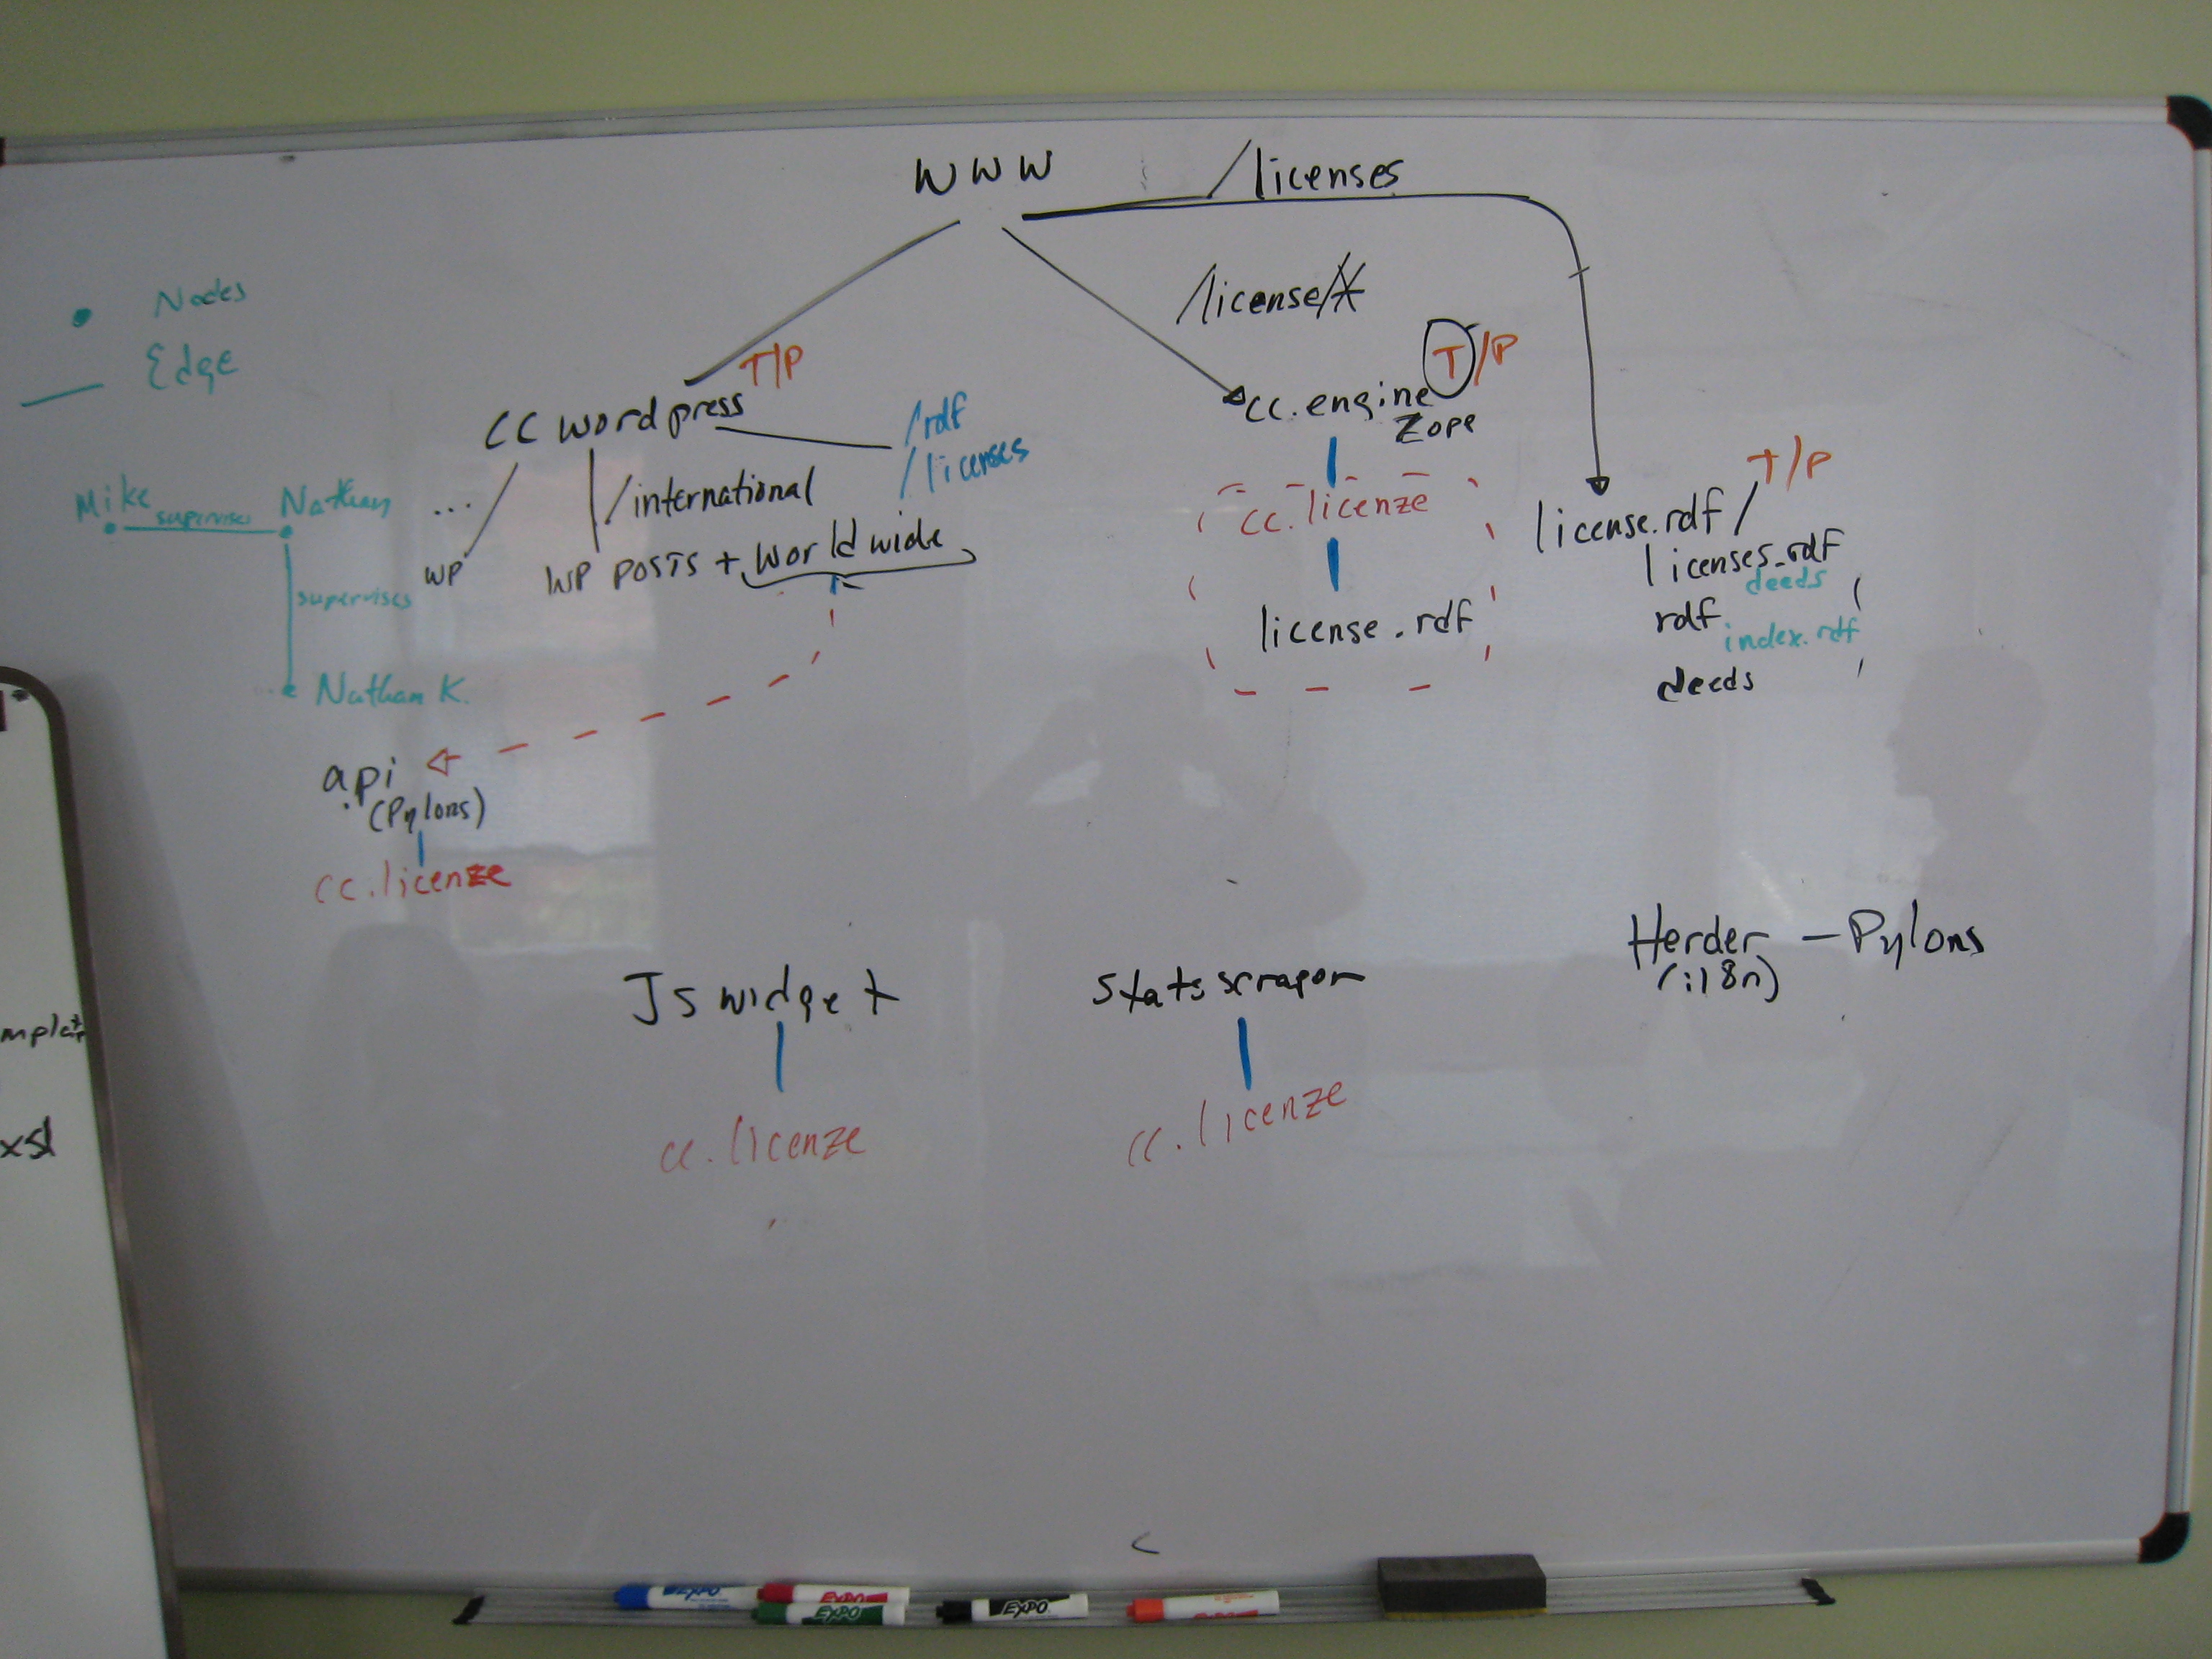 WWW
/licenses
/license/*
Nodes
Edge
T/P
T/P
CC wordpress
/rdf
/licenses
cc.engine
Zope
T/P
Mike
supervises
Nathan
...
/international
cc.licenze
license.rdf/
licenses.rdf
deeds
WP
WP POSTS + world wide
supervises
license.rdf
rdf
index.rdf
deeds
Nathan K.
api
(Pylons)
cc.licenze
Herder - Pylons
(i18n)
JS widget
Stats scraper
cc.licenze
cc.licenze
xsl
EXPO
EXPO
EXPO
EXPO